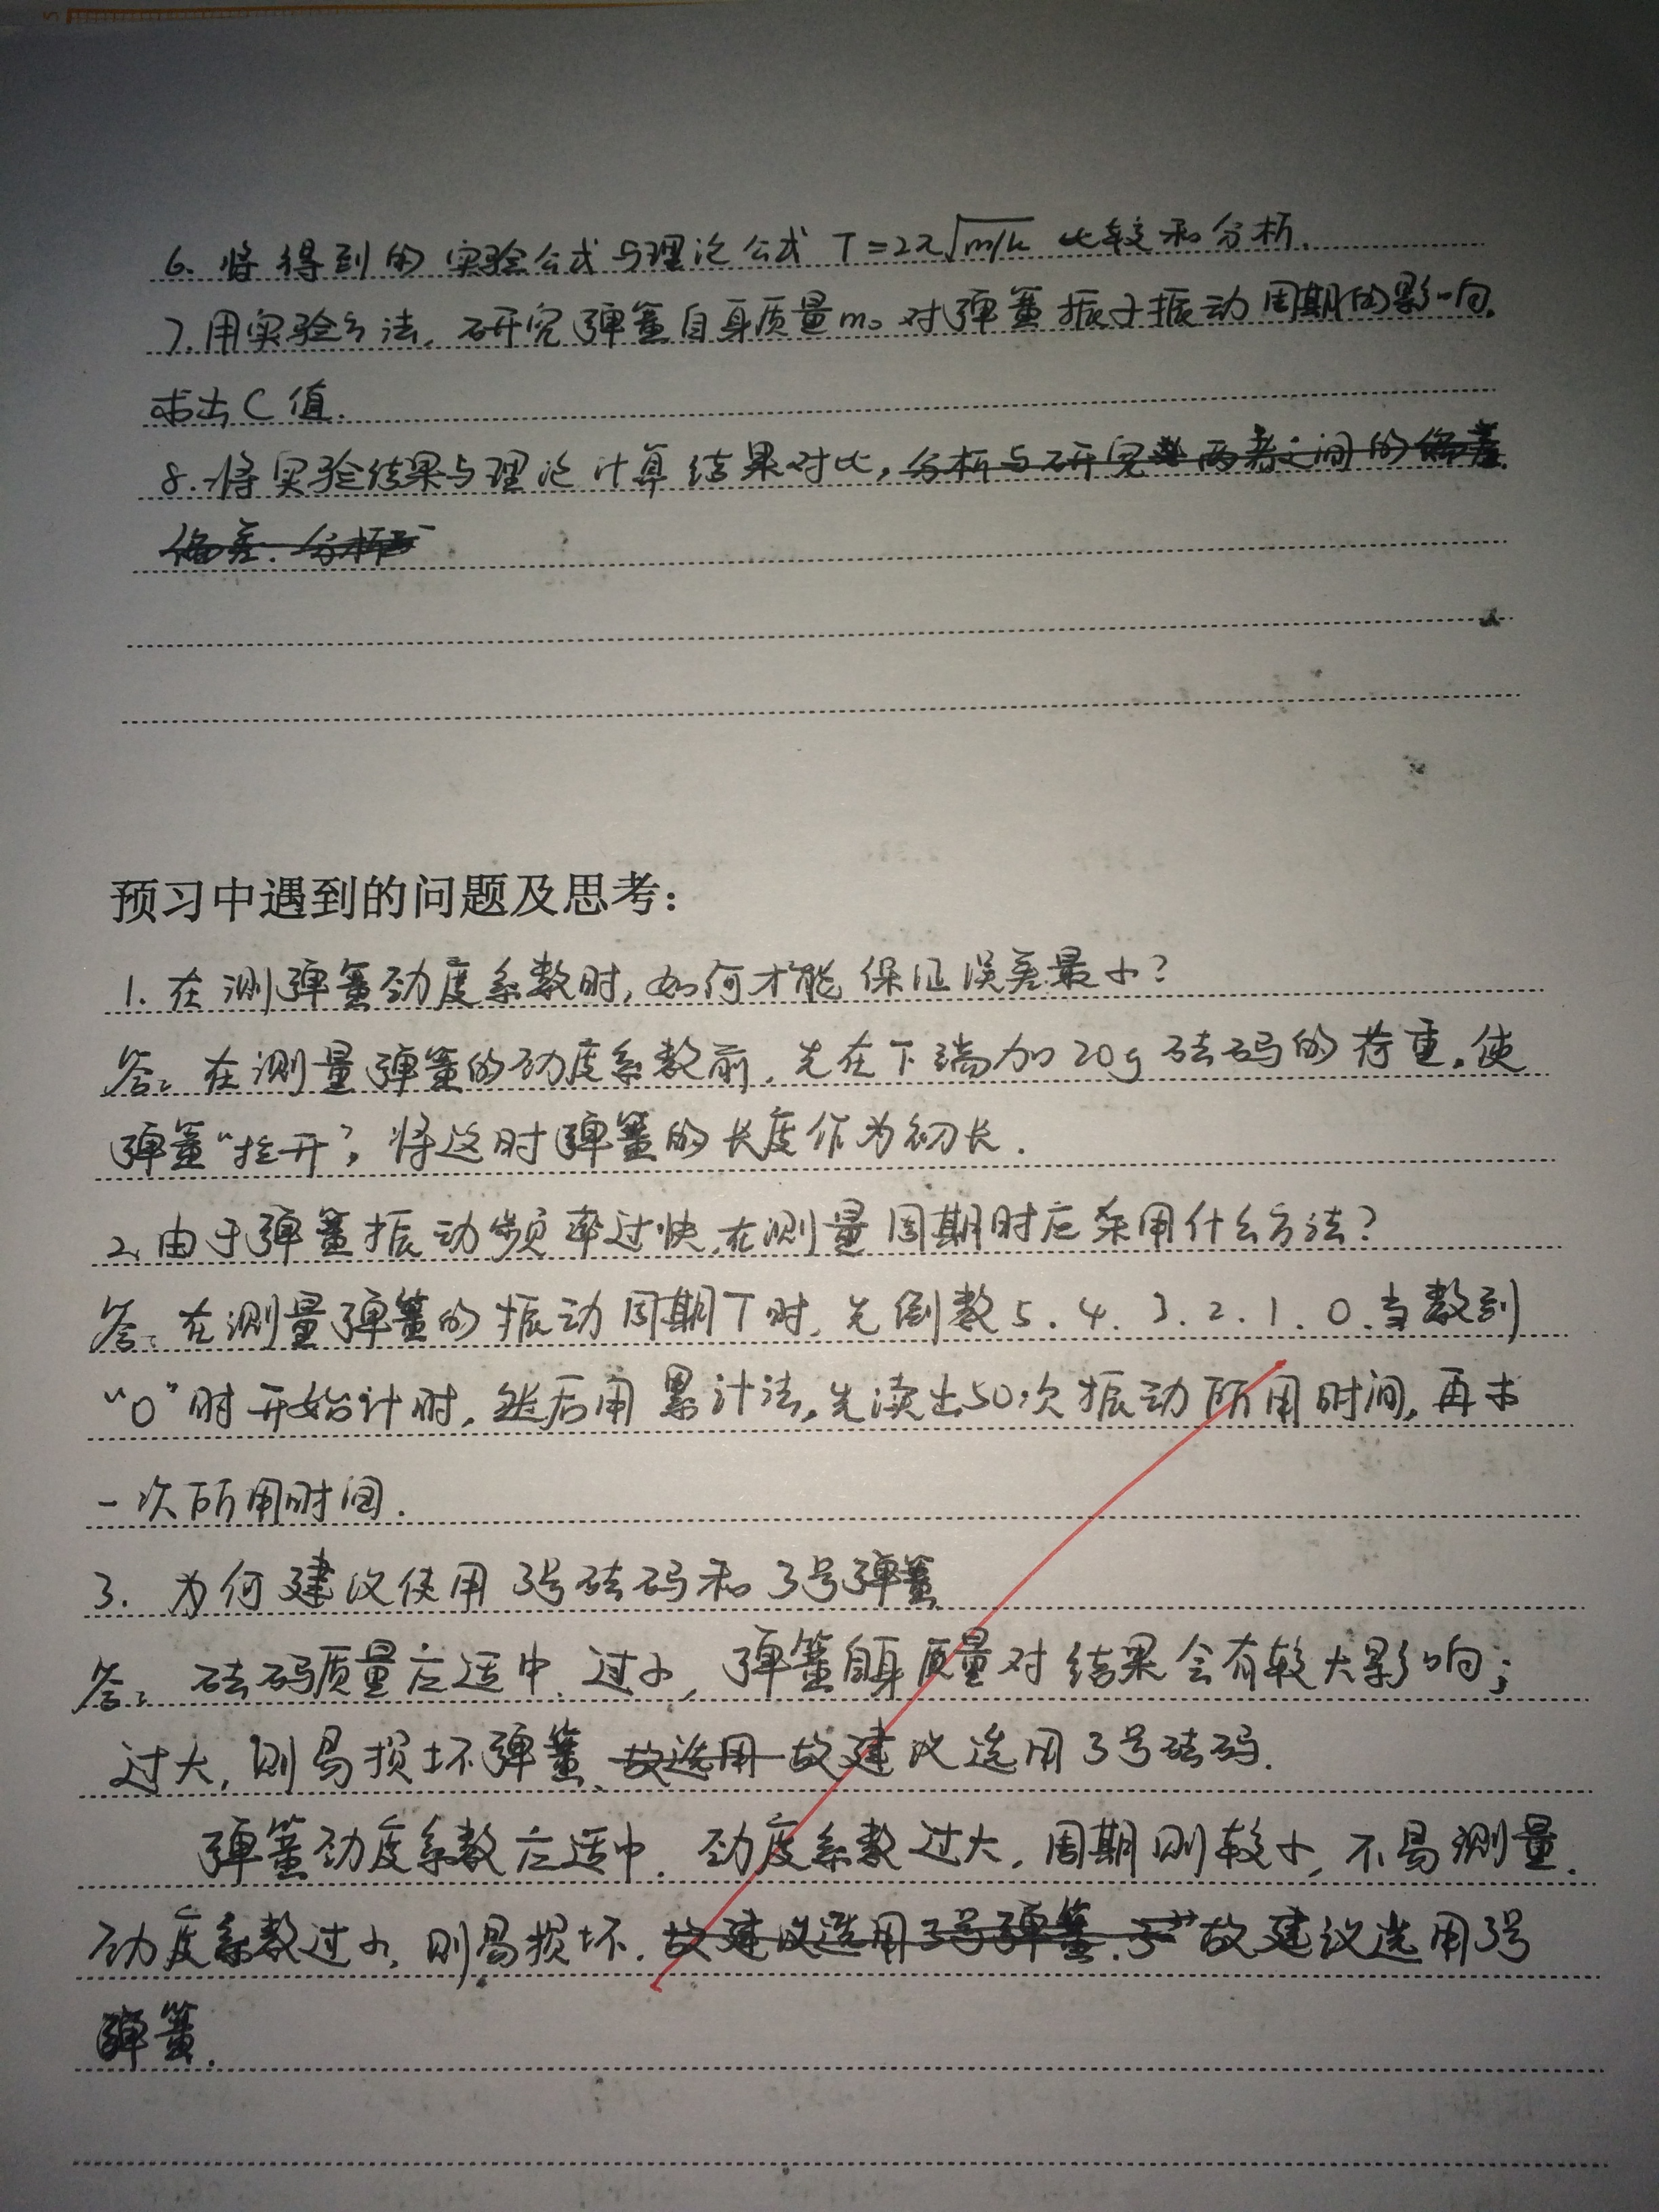 6. 将得到的实验公式与理论公式 T=2π√m/k 比较和分析.
7. 用实验方法, 研究弹簧自身质量m₀对弹簧振子振动周期的影响.
求出C值.
8. 将实验结果与理论计算结果对比, 分析与研究 两者之间的偏差
偏差. 分析
预习中遇到的问题及思考：
1. 在测弹簧劲度系数时, 如何才能保证误差最小?
答: 在测量弹簧的劲度系数前, 先在下端加20g砝码的荷重, 使
弹簧“拉开”, 将这时弹簧的长度作为初长.
2. 由于弹簧振动频率过快, 在测量周期时应采用什么方法?
答: 在测量弹簧的振动周期T时, 先倒数5. 4. 3. 2. 1. 0. 当数到
“0”时开始计时, 然后用累计法, 先读出50次振动所用时间, 再求
一次所用时间.
3. 为何建议使用3号砝码和3号弹簧
答: 砝码质量应适中. 过小, 弹簧自身质量对结果会有较大影响;
过大, 则易损坏弹簧. 故选用 故建议选用3号砝码.
弹簧劲度系数应适中. 劲度系数过大, 周期则较小, 不易测量.
劲度系数过小, 则易损坏. 故建议选用3号弹簧. 故建议选用3号
弹簧.
5